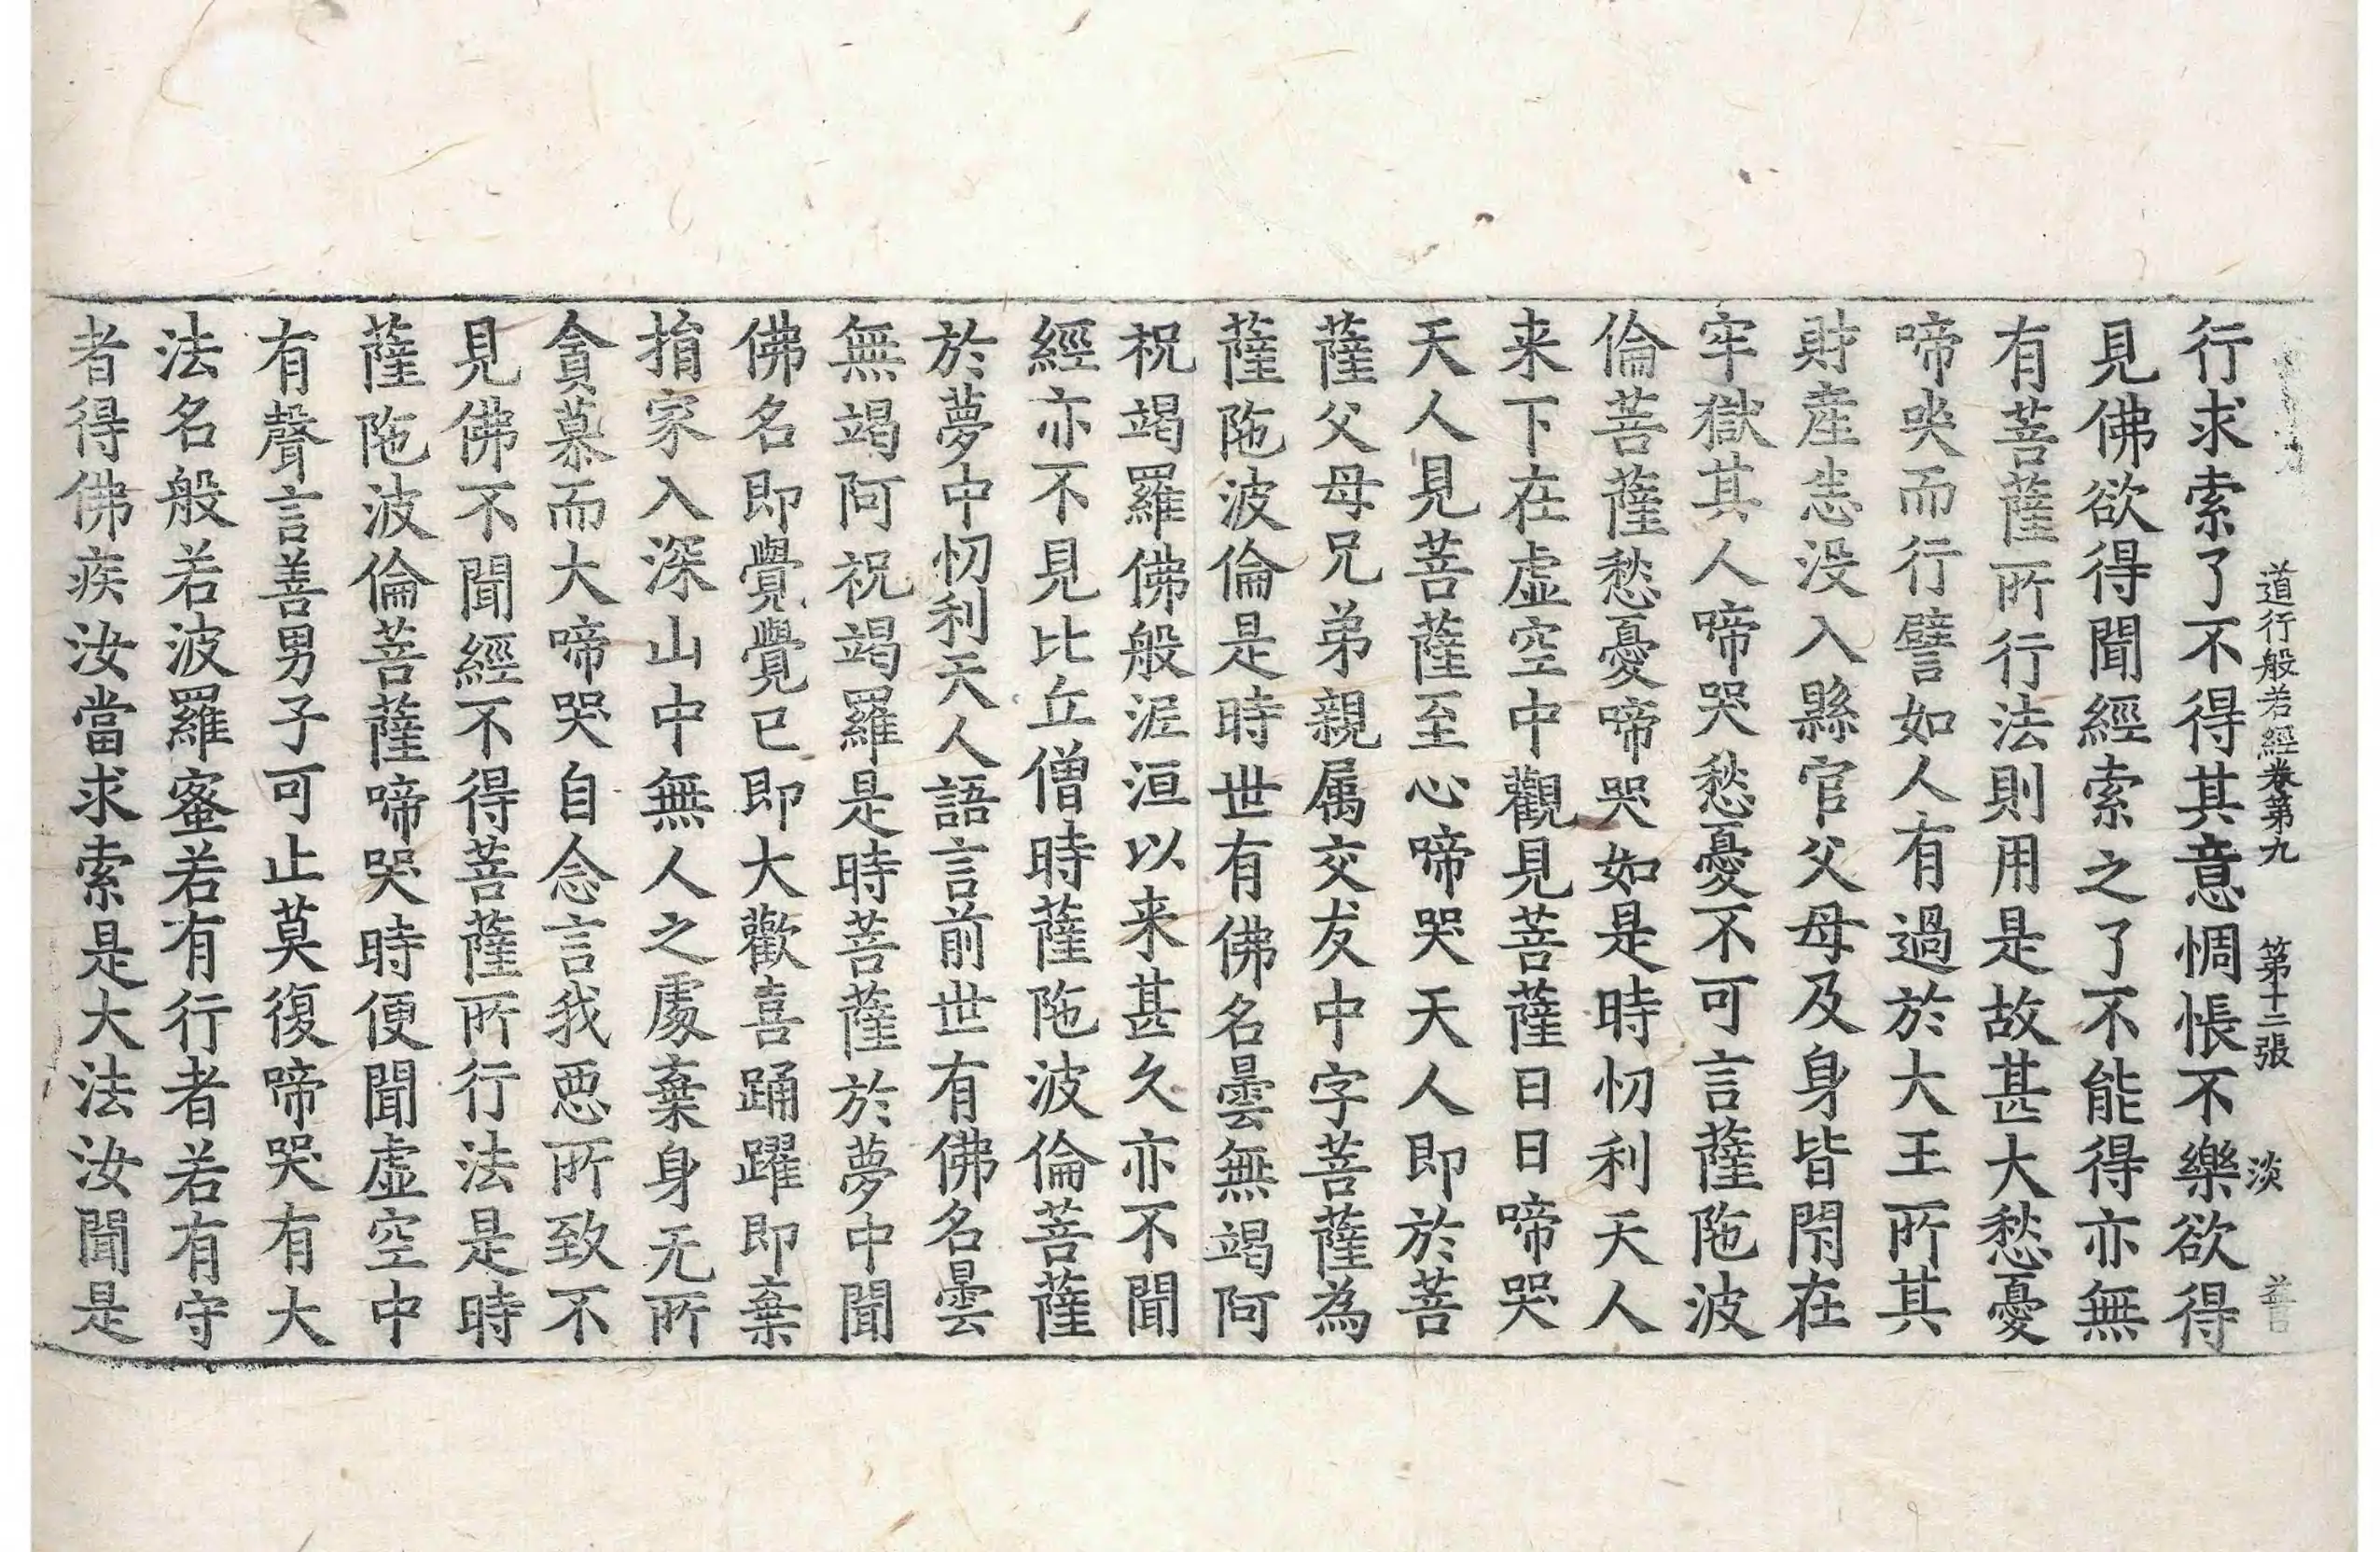 道行般若經卷第九 第十二張 淡
行求索了不得其意惆悵不樂欲得
見佛欲得聞經索之了不能得亦無
有菩薩所行法則用是故甚大愁憂
啼哭而行譬如人有過於大王所其
財産悉没入縣官父母及身皆閇在
牢獄其人啼哭愁憂不可言薩陁波
倫菩薩愁憂啼哭如是時忉利天人
来下在虛空中觀見菩薩日日啼哭
天人見菩薩至心啼哭天人即於菩
薩父母兄弟親属交友中字菩薩為
薩陁波倫是時世有佛名曇無竭阿
祝竭羅佛般泥洹以来甚久亦不聞
經亦不見比丘僧時薩陁波倫菩薩
於夢中忉利天人語言前世有佛名曇
無竭阿祝竭羅是時菩薩於夢中聞
佛名即覺覺已即大歡喜踊躍即棄
捐家入深山中無人之處棄身无所
貪慕而大啼哭自念言我惡所致不
見佛不聞經不得菩薩所行法是時
薩陁波倫菩薩啼哭時便聞虛空中
有聲言善男子可止莫復啼哭有大
法名般若波羅蜜若有行者若有守
者得佛疾汝當求索是大法汝聞是